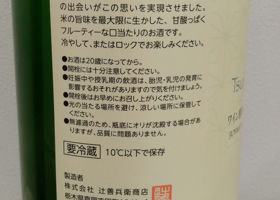 の出会いがこの思いを実現させました。
米の旨味を最大限に生かした、甘酸っぱく
フルーティーな口当たりのお酒です。
冷やして、またはロックでお楽しみください。
●お酒は20歳になってから。
●開栓には十分注意してください。
●妊娠中や授乳期の飲酒は、胎児・乳児の発育に
影響するおそれがありますので気をつけましょう。
●光の当たる場所を避け、涼しい場所に保管して
ください。
●無濾過のため、瓶底にオリが沈殿する場合があ
りますが、品質に問題ありません。
要冷蔵 10℃以下で保存
製造者
株式会社 辻善兵衛商店
栃木県真岡市